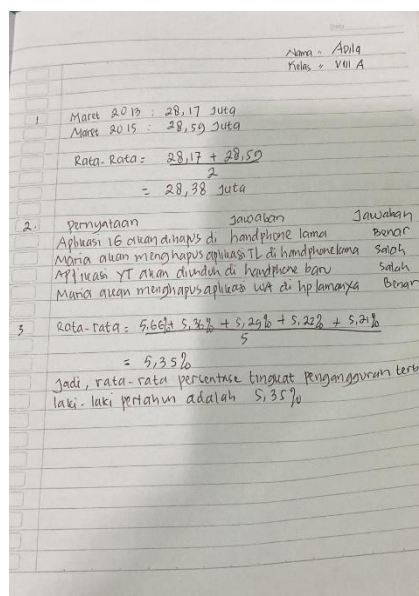 Nama = Adila
Kelas = VIII A
1 Maret 2013 : 28,17 Juta
Maret 2015 : 28,59 Juta
Rata-Rata = 28,17 + 28,59
2
= 28,38 Juta
2. Pernyataan Jawaban Jawaban
Aplikasi IG akan dihapus di handphone lama Benar
Maria akan menghapus aplikasi TL di handphone lama Salah
Aplikasi YT akan diunduh di handphone baru Salah
Maria akan menghapus aplikasi WA di hp lamanya Benar
3 Rata-rata = 5,66% + 5,36% + 5,25% + 5,22% + 5,21%
5
= 5,35%
Jadi, rata-rata persentase tingkat pengangguran terb
laki-laki pertahun adalah 5,35%